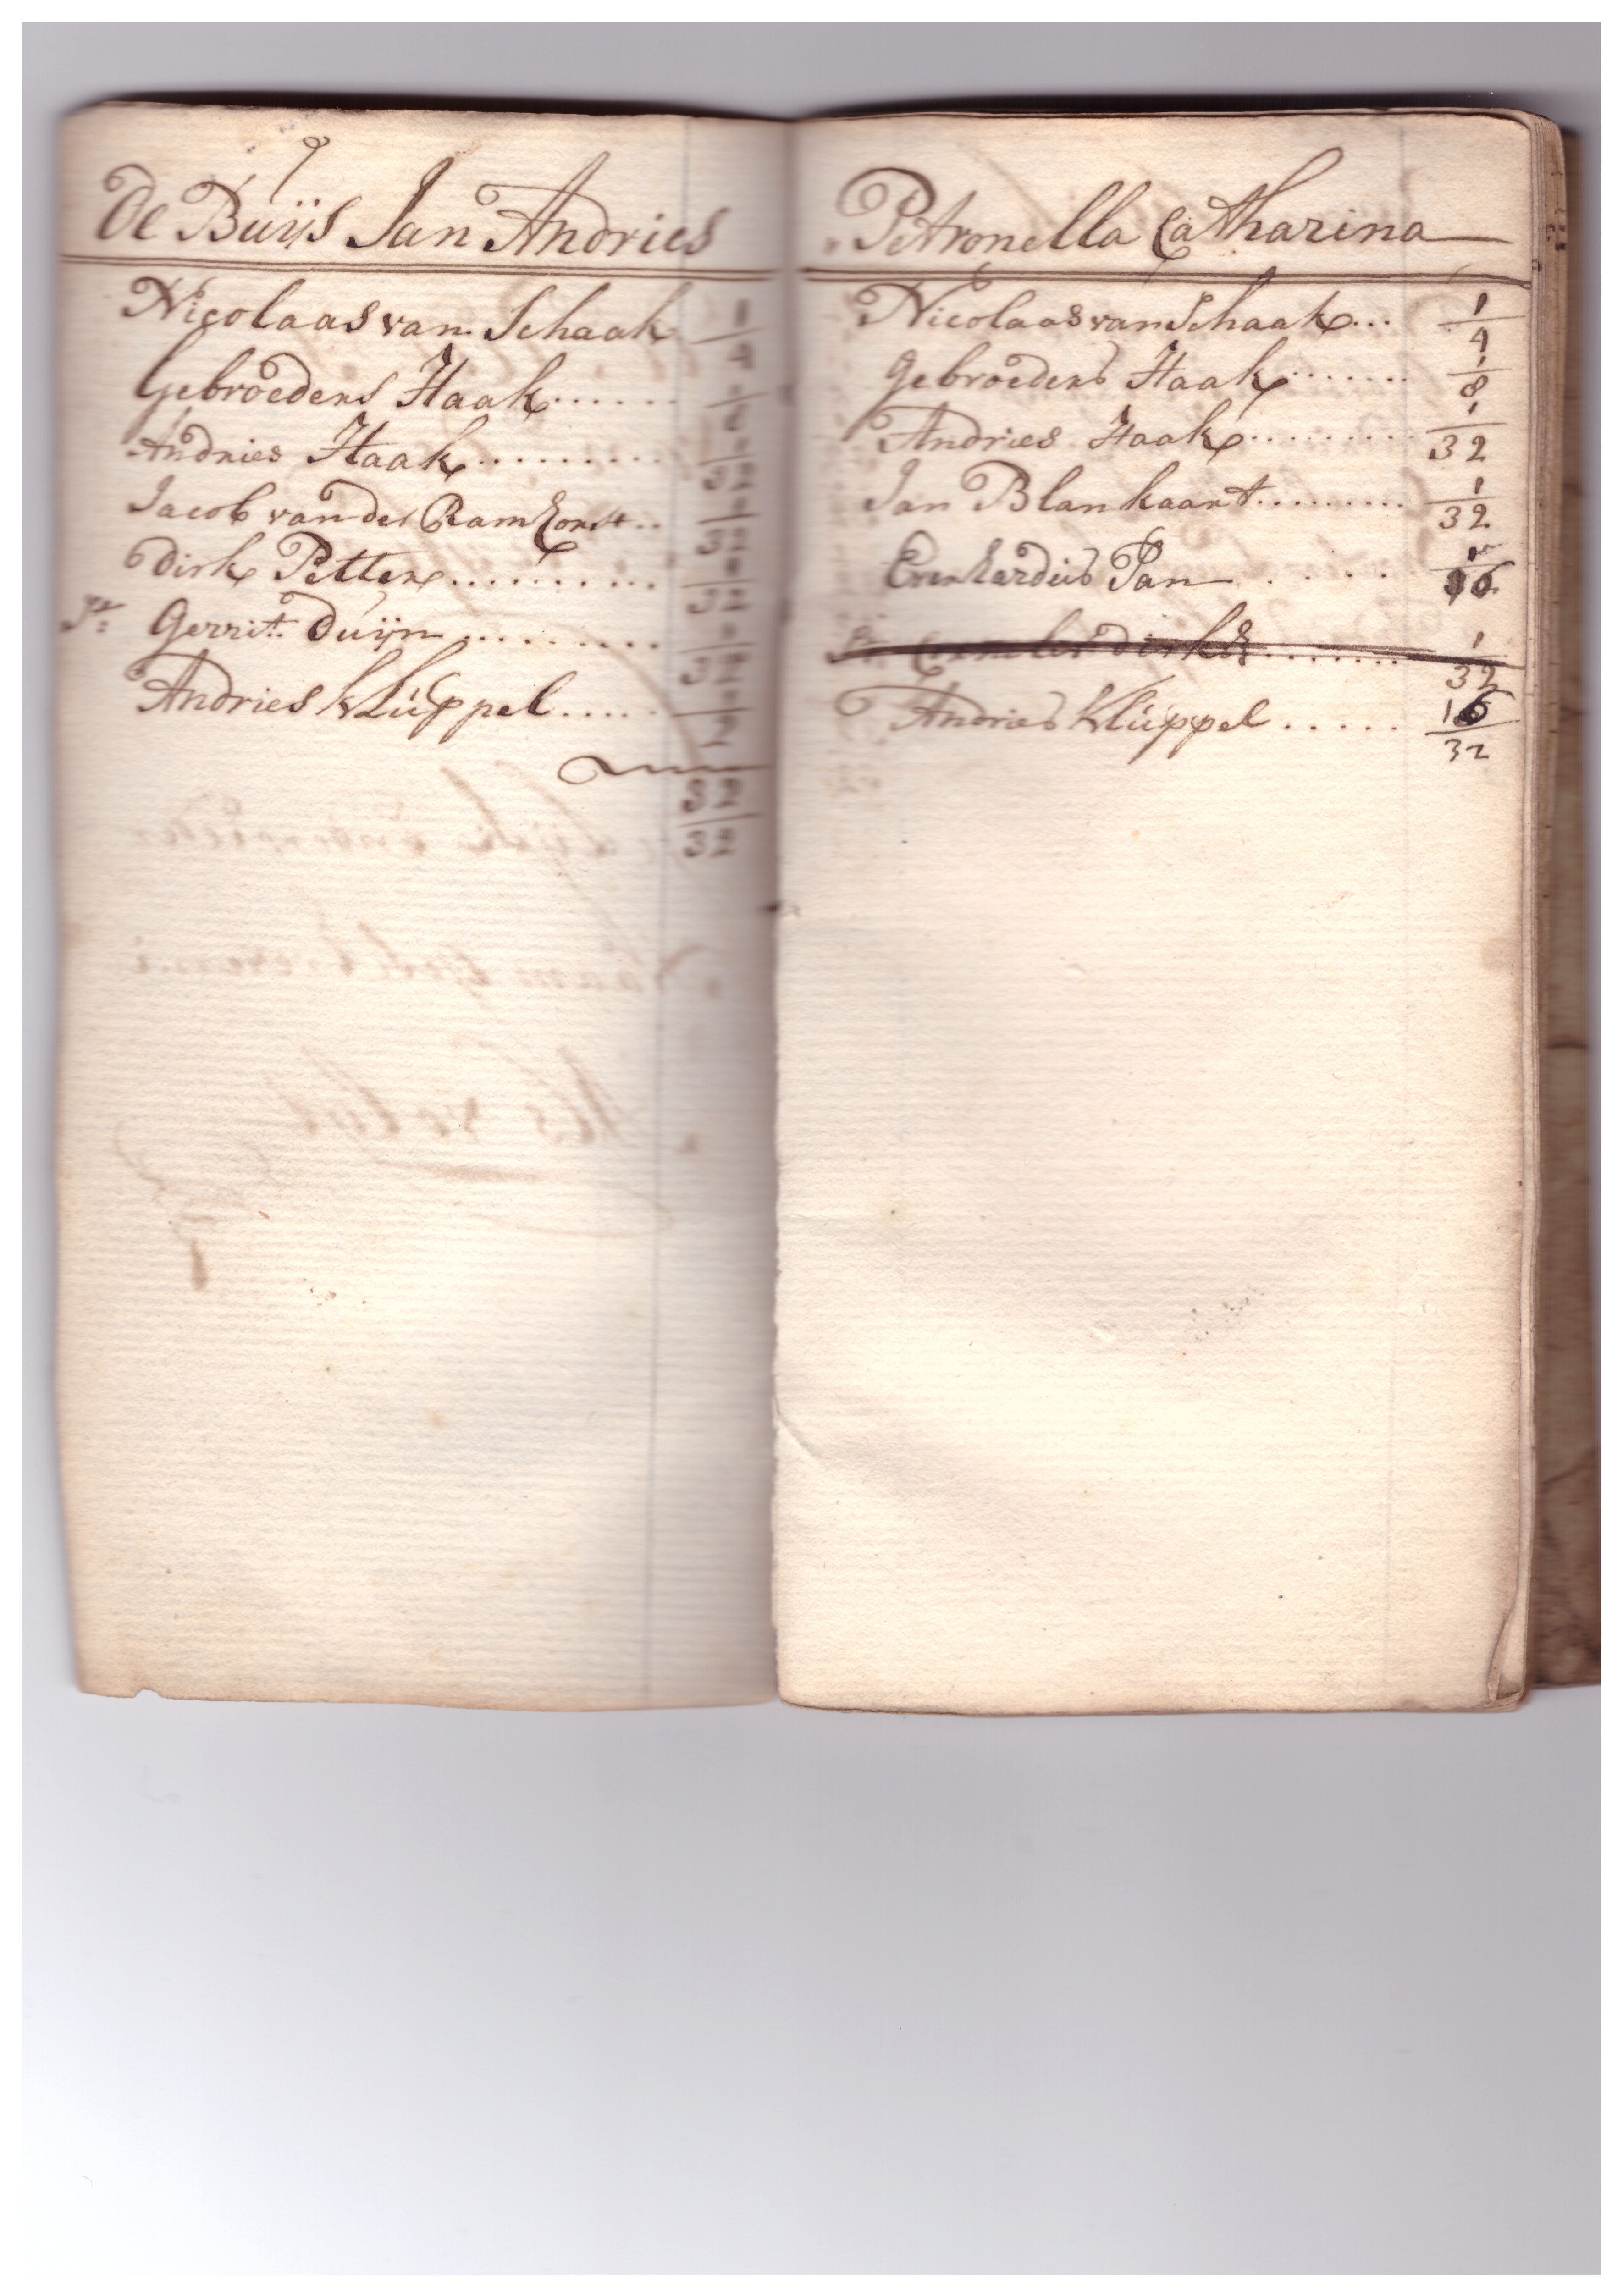 De Buijs Jan Andries
Nicolaas van Schaak 1/4
Gebroeders Haak...... 1/8
Andries Haak......... 1/32
Jacob van der Ramhorst.. 1/32
Dirk Petten.......... 1/32
Gerrit Duijn......... 1/32
Andries Klüppel..... 1/2
32/32
Petronella Catharina
Nicolaas van Schaak... 1/4
Gebroeders Haak....... 1/8
Andries Haak......... 1/32
Jan Blankaart......... 1/32
Everhardus Pan ..... 1/16
Cornelis dirksz....... 1/32
Andries Klüppel ..... 16/32